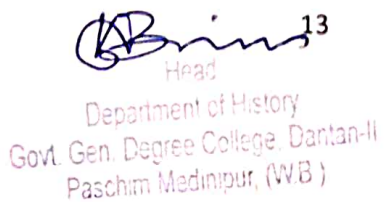 13
Head
Department of History
Govt. Gen. Degree College, Dantan-II
Paschim Medinipur, (W.B.)